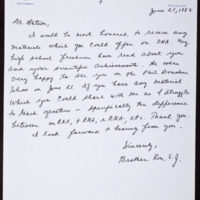 June 21, 1982
Dr. Watson,
I would be most honored to receive any
materials which you could offer on DNA. My
high school freshmen have read about you
and your scientific achievements. We were
very happy to see you on the Phil Donahue
Show on June 21. If you have any material
which you could share with me as I struggle
to teach genetics - specifically the difference
between mRNA, tRNA, rRNA, etc. Thank you.
I look forward to hearing from you.
Sincerely,
Brother Ron, S.J.